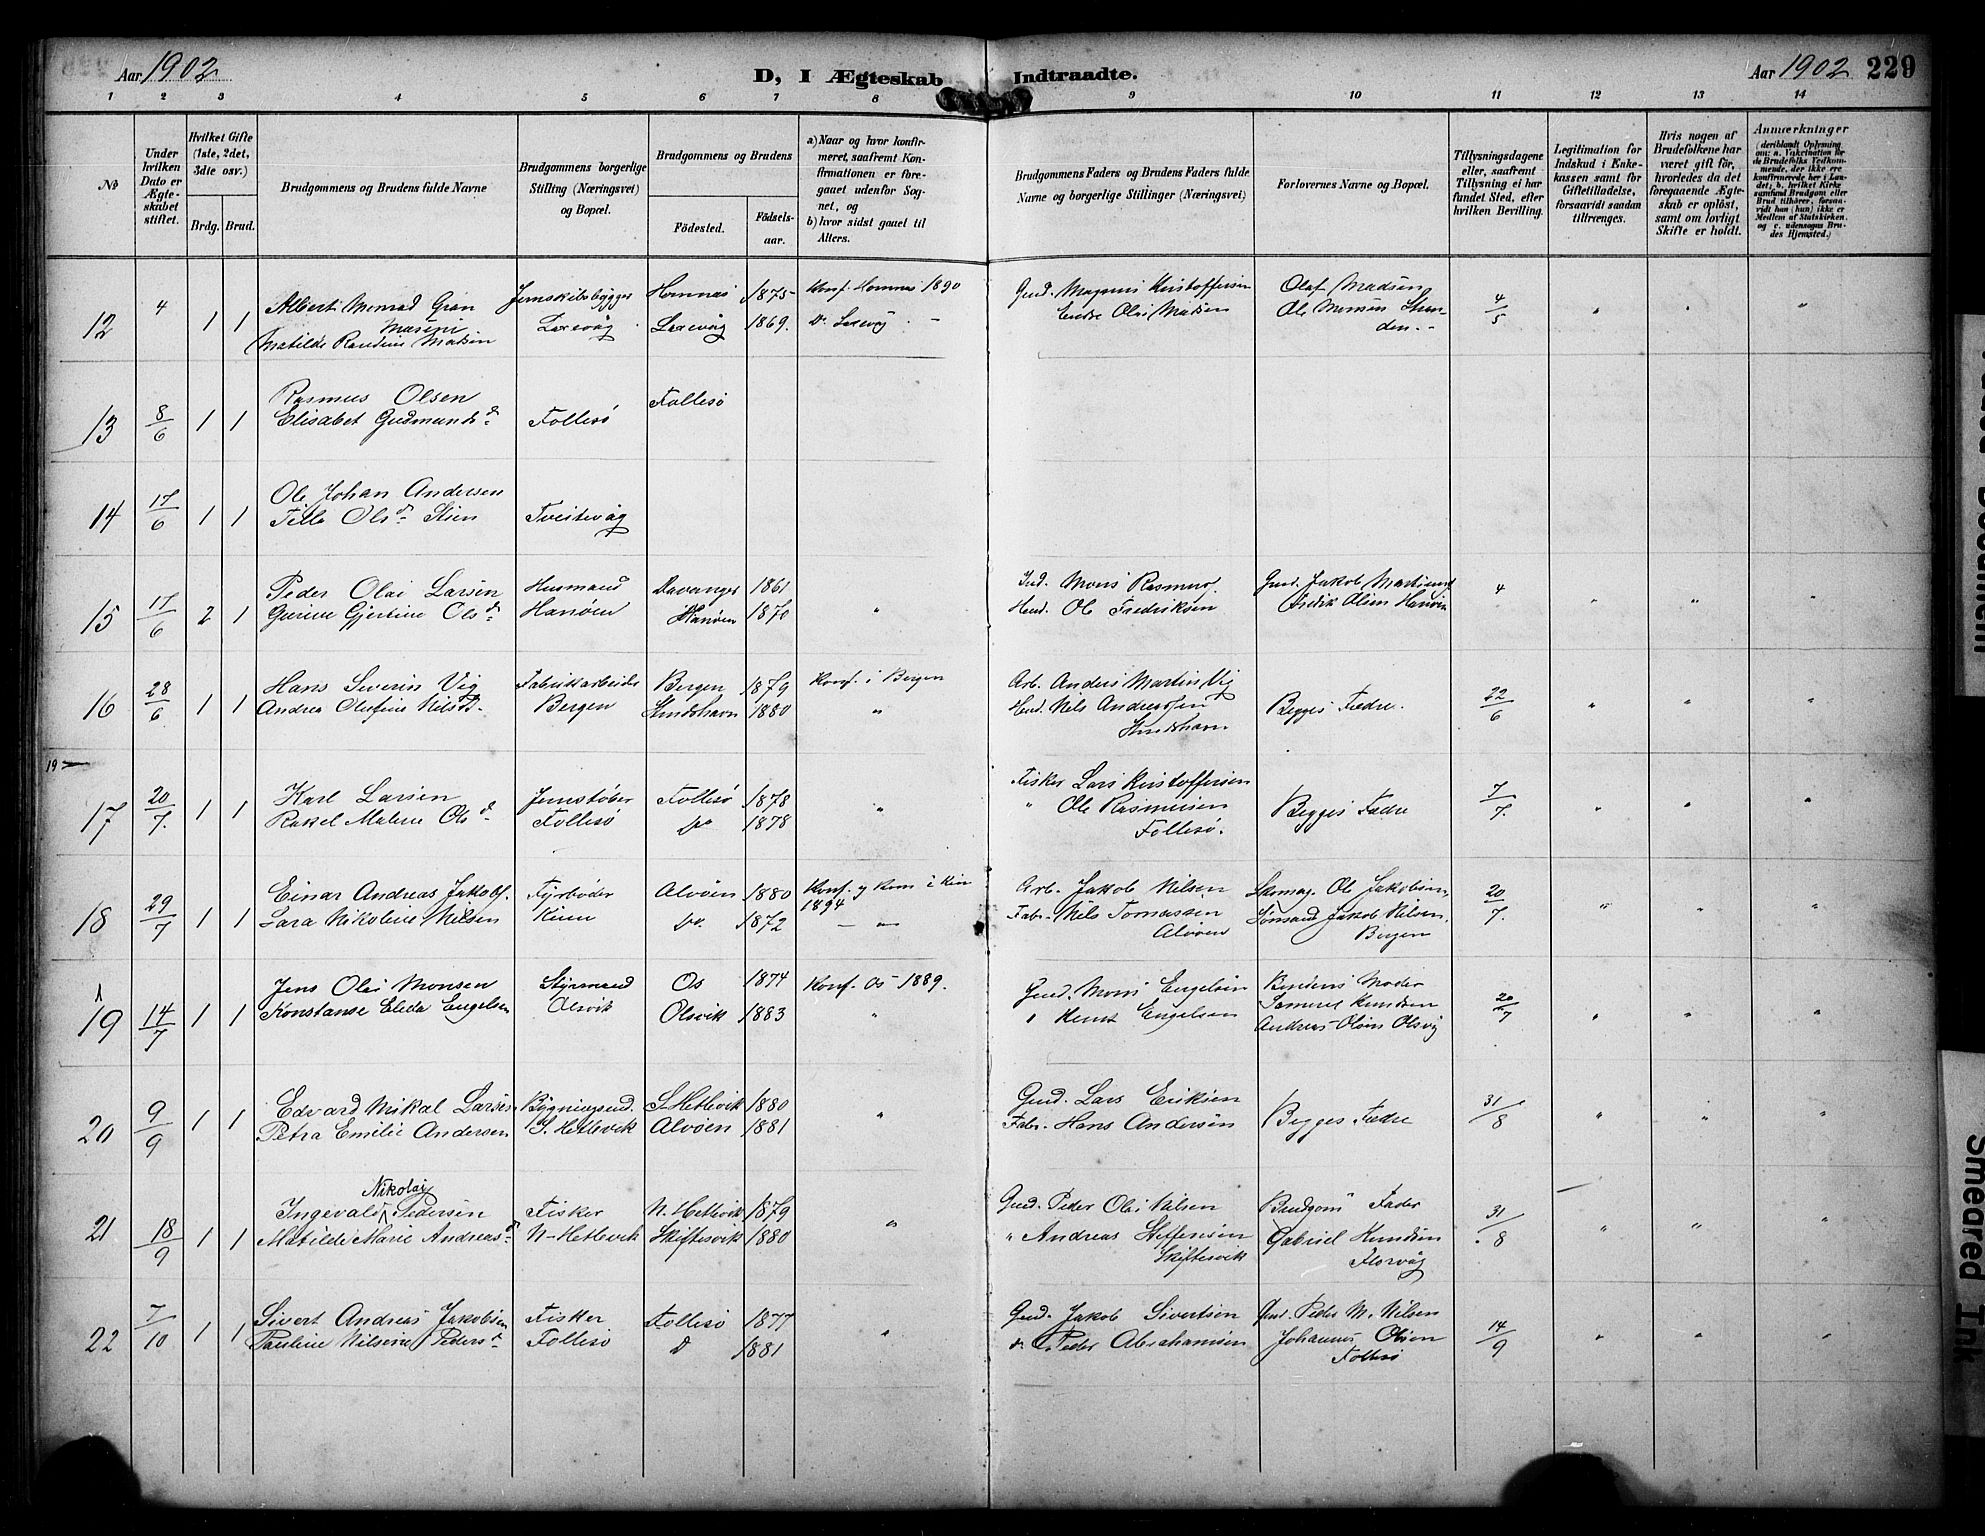 Aar 1902
D, I Ægteskab Indtraadte.
Aar 1902 229
1 2 3 4 5 6 7 8 9 10 11 12 13 14
№
Under hvilken Dato er Ægteskabet stiftet.
Hvilket Gifte (1ste, 2det, 3die osv.)
Brdg. Brud.
Brudgommens og Brudens fulde Navne
Brudgommens borgerlige Stilling (Næringsvei) og Bopæl.
Brudgommens og Brudens
Fødested. Fødselsaar.
a) Naar og hvor konfirmeret, saafremt Konfirmationen er foregaaet udenfor Sognet, og
b) hvor sidst gaaet til Alters.
Brudgommens Faders og Brudens Faders fulde Navne og borgerlige Stillinger (Næringsvei)
Forlovernes Navne og Bopæl.
Tillysningsdagene eller, saafremt Tillysning ei har fundet Sted, efter hvilken Bevilling.
Legitimation for Indskud i Enkekassen samt for Giftetilladelse, forsaavidt saadan tiltrænges.
Hvis nogen af Brudefolkene har været gift før, hvorledes da det foregaaende Ægteskab er opløst, samt om lovligt Skifte er holdt.
Anmærkninger
(deriblandt Oplysning om: a. Vakcination for de Brudefolks Vedkommende, der ikke ere konfirmerede her i Landet; b. hvilket Kirkesamfund Brudgom eller Brud tilhører, forsaavidt han (hun) ikke er Medlem af Statskirken. og c. udensogns Brudes Hjemsted.)
12 4 1 1 Albert Monrad Gran Jernskibsbygger 1875 Konf. 1890 Gmd. Magnus Kristoffersen Olaf Madsen 4/5 " " "
Matilde Madsen Laxevåg Laxevåg 1869. Do Laxevåg - Olai Madsen Ole
13 8/6 1 1 Rasmus Olsen Follesö
Elisabet Gudmundsd. Follesö
14 17/6 1 1 Ole Johan Andersen
Olsd. Stien Tveitevåg
15 17/6 2 1 Peder Olai Larsen Husmand Davanger 1861 Mons Rasmus. Gmd. Jakob 4 " " "
Gjertine Olsd. Hanöen Hanöen 1870 " Ole Fredriksen Olsen
16 28/6 1 1 Hans Severin Vig Fabrikarbeider Bergen 1879 Konf. i Bergen Arb. Anders Martin Vig 22/6 " " "
Andrea Olufine Nilsd. Bergen 1880 " Nils Andreassen Begges Fædre.
17 20/7. 1 1 Karl Larsen Jernstöber Follesö 1878 Fisker Lars Kristoffersen 7/7. " " "
Rakel Malene Olsd. Follesö Do 1878 " " Ole Rasmussen Begges Fædre
Follesö.
18 29/7 1 1 Einar Andreas Jakobs. Fyrböder Alvöen 1880 Konf. 1894 Arb. Jakob Nilsen Ole Jakobsen 20/7. " " "
Sara Nikoline Nilsen Do. 1872 Fabr. Nils Tomassen Jakob Nilsen,
Alvöen Bergen
19 14/7 1 1 Jens Olai Monsen Styrmand Os 1874 Konf. Os 1889. Gmd. Mons Engelsen Brudens Moder 20/7 " " "
Konstanse Elida Engelsen Olsvik Olsvik 1883 " " Knut Engelsen Samuel Knudsen
Andreas Olsen Olsvig
20 9/9 1 1 Edvard Mikal Larsen S. Hetlevik 1880 Gmd. Lars Eriksen 31/8 " " "
Petra Emilie Andersen S. Hetlevik Alvöen 1881 " Fabr. Hans Andersen Begges Fædre
21 18/9 1 1 Nikolai
Ingevald Pedersen Fisker N. Hetlevik 1879 Gmd. Peder Olai Nilsen Brudgoms Fader 31/8 " " "
Matilde Marie Andreasd. N. Hetlevik Skiftesvik 1880 " " Andreas Steffensen Gabriel Knudsen
Skiftesvik Florvåg
22 7/10 1 1 Sivert Andreas Jakobsen Fisker Follesö 1877 Gmd. Jakob Sivertsen Gmd. Peder M. Nilsen 14/9 " " "
Pauline Nilsine Pedersd. Follesö Do 1881 " Do Peder Abrahamsen Johannes Olsen
Follesö
19
Smeared Ink